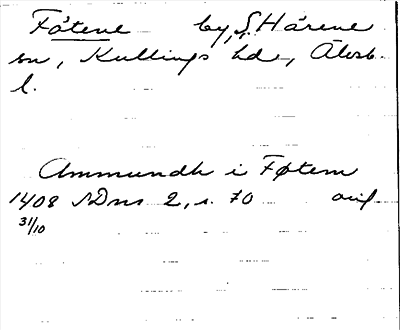 Fåtene by, S. Härene
sn, Kullings hd, Älvsb.
l.
Ammundh i Føtem
1408 SDns 2, s. 70 orig
31/10